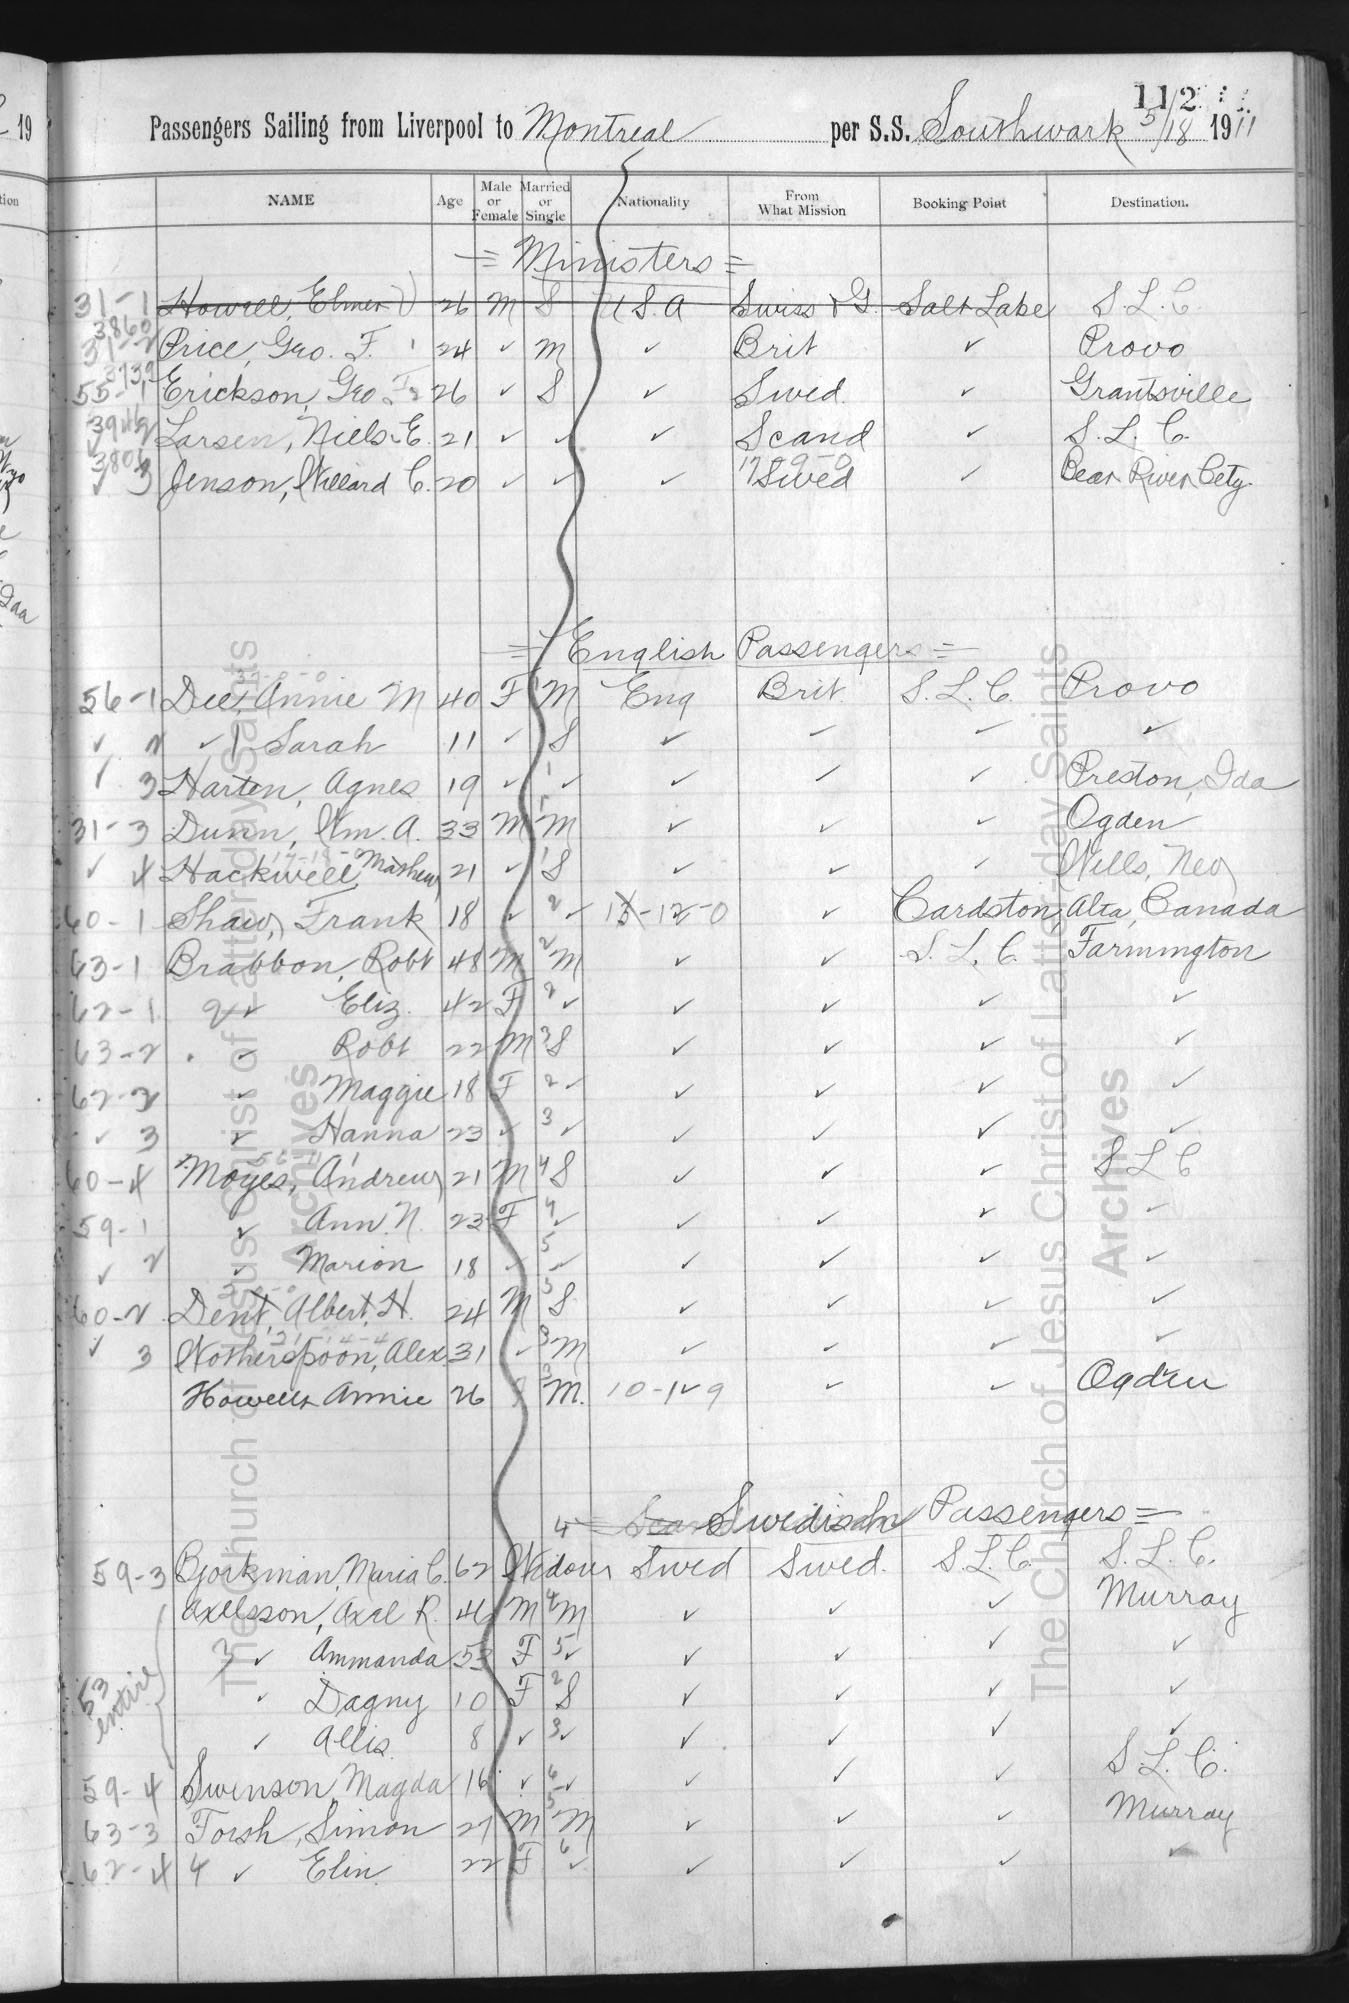 112
Passengers Sailing from Liverpool to Montreal per S.S. Southwark 5/18 1911
NAME Age Male or Female Married or Single Nationality From What Mission Booking Point Destination.
= Ministers =
31-1 Howell, Elmer 26 M S U.S.A Swiss & G. Salt Lake S.L.C.
3860
31-2 Price, Geo. F. 24 ✓ M ✓ Brit ✓ Provo
3739
55-1 Erickson, Geo F 26 ✓ S ✓ Swed. ✓ Grantsville
✓ 2 Larsen, Niels E. 21 ✓ ✓ ✓ Scand ✓ S.L.C.
3806 17-9-0
✓ 3 Jenson, Willard C. 20 ✓ ✓ ✓ Swed ✓ Bear River City.
= English Passengers =
56-1 Dee, Annie M 40 F M Eng Brit. S.L.C. Provo
✓ 2 ✓ Sarah 11 ✓ S ✓ ✓ ✓ ✓
✓ 3 Harten, Agnes 19 ✓ 1 ✓ ✓ ✓ ✓ Preston, Ida
31-3 Dunn, Wm. A. 33 M 1 M ✓ ✓ ✓ Ogden
✓ 4 Hackwell, Mathew 21 ✓ 1 S ✓ ✓ ✓ Wells, Nev
60-1 Shaw, Frank 18 ✓ 2 ✓ 13-12-0 ✓ Cardston, Alta, Canada
63-1 Brabbon, Robt 48 M 2 M ✓ ✓ S.L.C. Farmington
62-1 2 ✓ Eliz. 42 F 2 ✓ ✓ ✓ ✓ ✓
63-2 ✓ Robt 22 M 3 S ✓ ✓ ✓ ✓
62-2 ✓ Maggie 18 F 2 ✓ ✓ ✓ ✓ ✓
✓ 3 ✓ Hanna 23 ✓ 3 ✓ ✓ ✓ ✓ ✓
60-4 Moyes, Andrew 21 M 4 S ✓ ✓ ✓ S L C
59-1 ✓ Ann N. 23 F 4 ✓ ✓ ✓ ✓ ✓
✓ 2 ✓ Marion 18 ✓ 5 ✓ ✓ ✓ ✓ ✓
60-2 Dent, Albert H. 24 M 5 S ✓ ✓ ✓ ✓
✓ 3 Wotherspoon, Alex 31 ✓ 3 M ✓ ✓ ✓ ✓
Howells Annie 26 M. 10-1-9 ✓ ✓ Ogden
4 = Swedish Passengers =
59-3 Bjorkman, Maria C. 62 Widow Swed Swed. S.L.C. S.L.C.
Axelsson, Axel R. 46 M 4 M ✓ ✓ ✓ Murray
3 ✓ Ammanda 53 F 5 ✓ ✓ ✓ ✓ ✓
53 entire ✓ Dagny 10 F 2 S ✓ ✓ ✓ ✓
✓ Allis 8 ✓ 3 ✓ ✓ ✓ ✓ ✓
59-4 Swenson, Magda 16 ✓ 6 ✓ ✓ ✓ ✓ S.L.C.
63-3 Forsh, Simon 27 M 5 M ✓ ✓ ✓ Murray
62-4 4 ✓ Elin 22 F 6 ✓ ✓ ✓ ✓ ✓
The Church of Jesus Christ of Latter-day Saints
Archives
The Church of Jesus Christ of Latter-day Saints
Archives